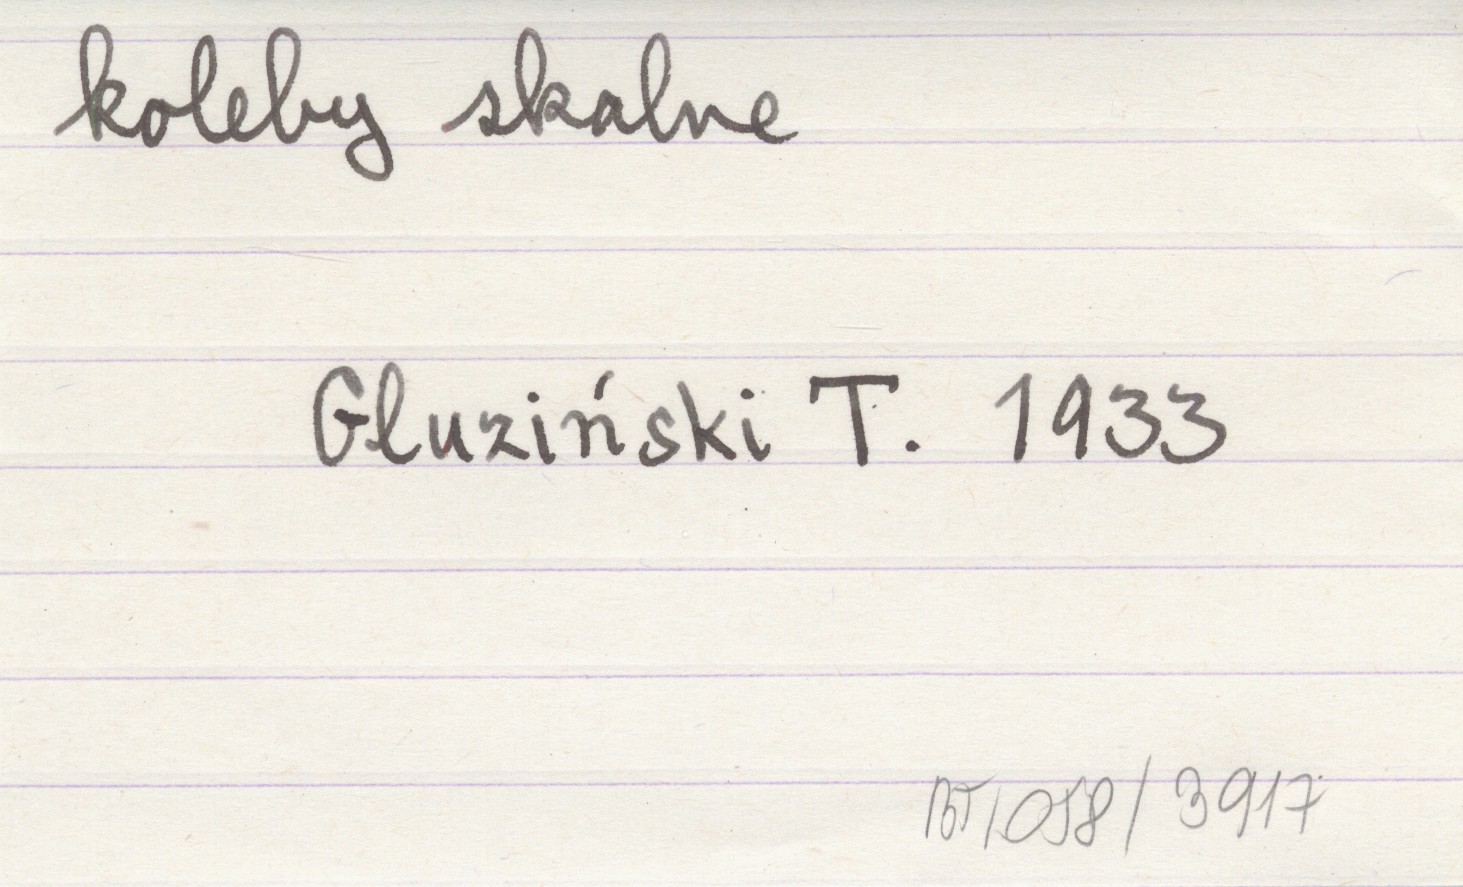 koleby skalne
Gluziński T. 1933
BT/058/3917